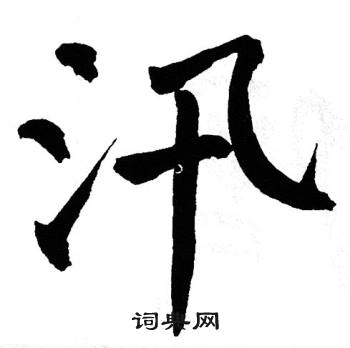 汛
词典网